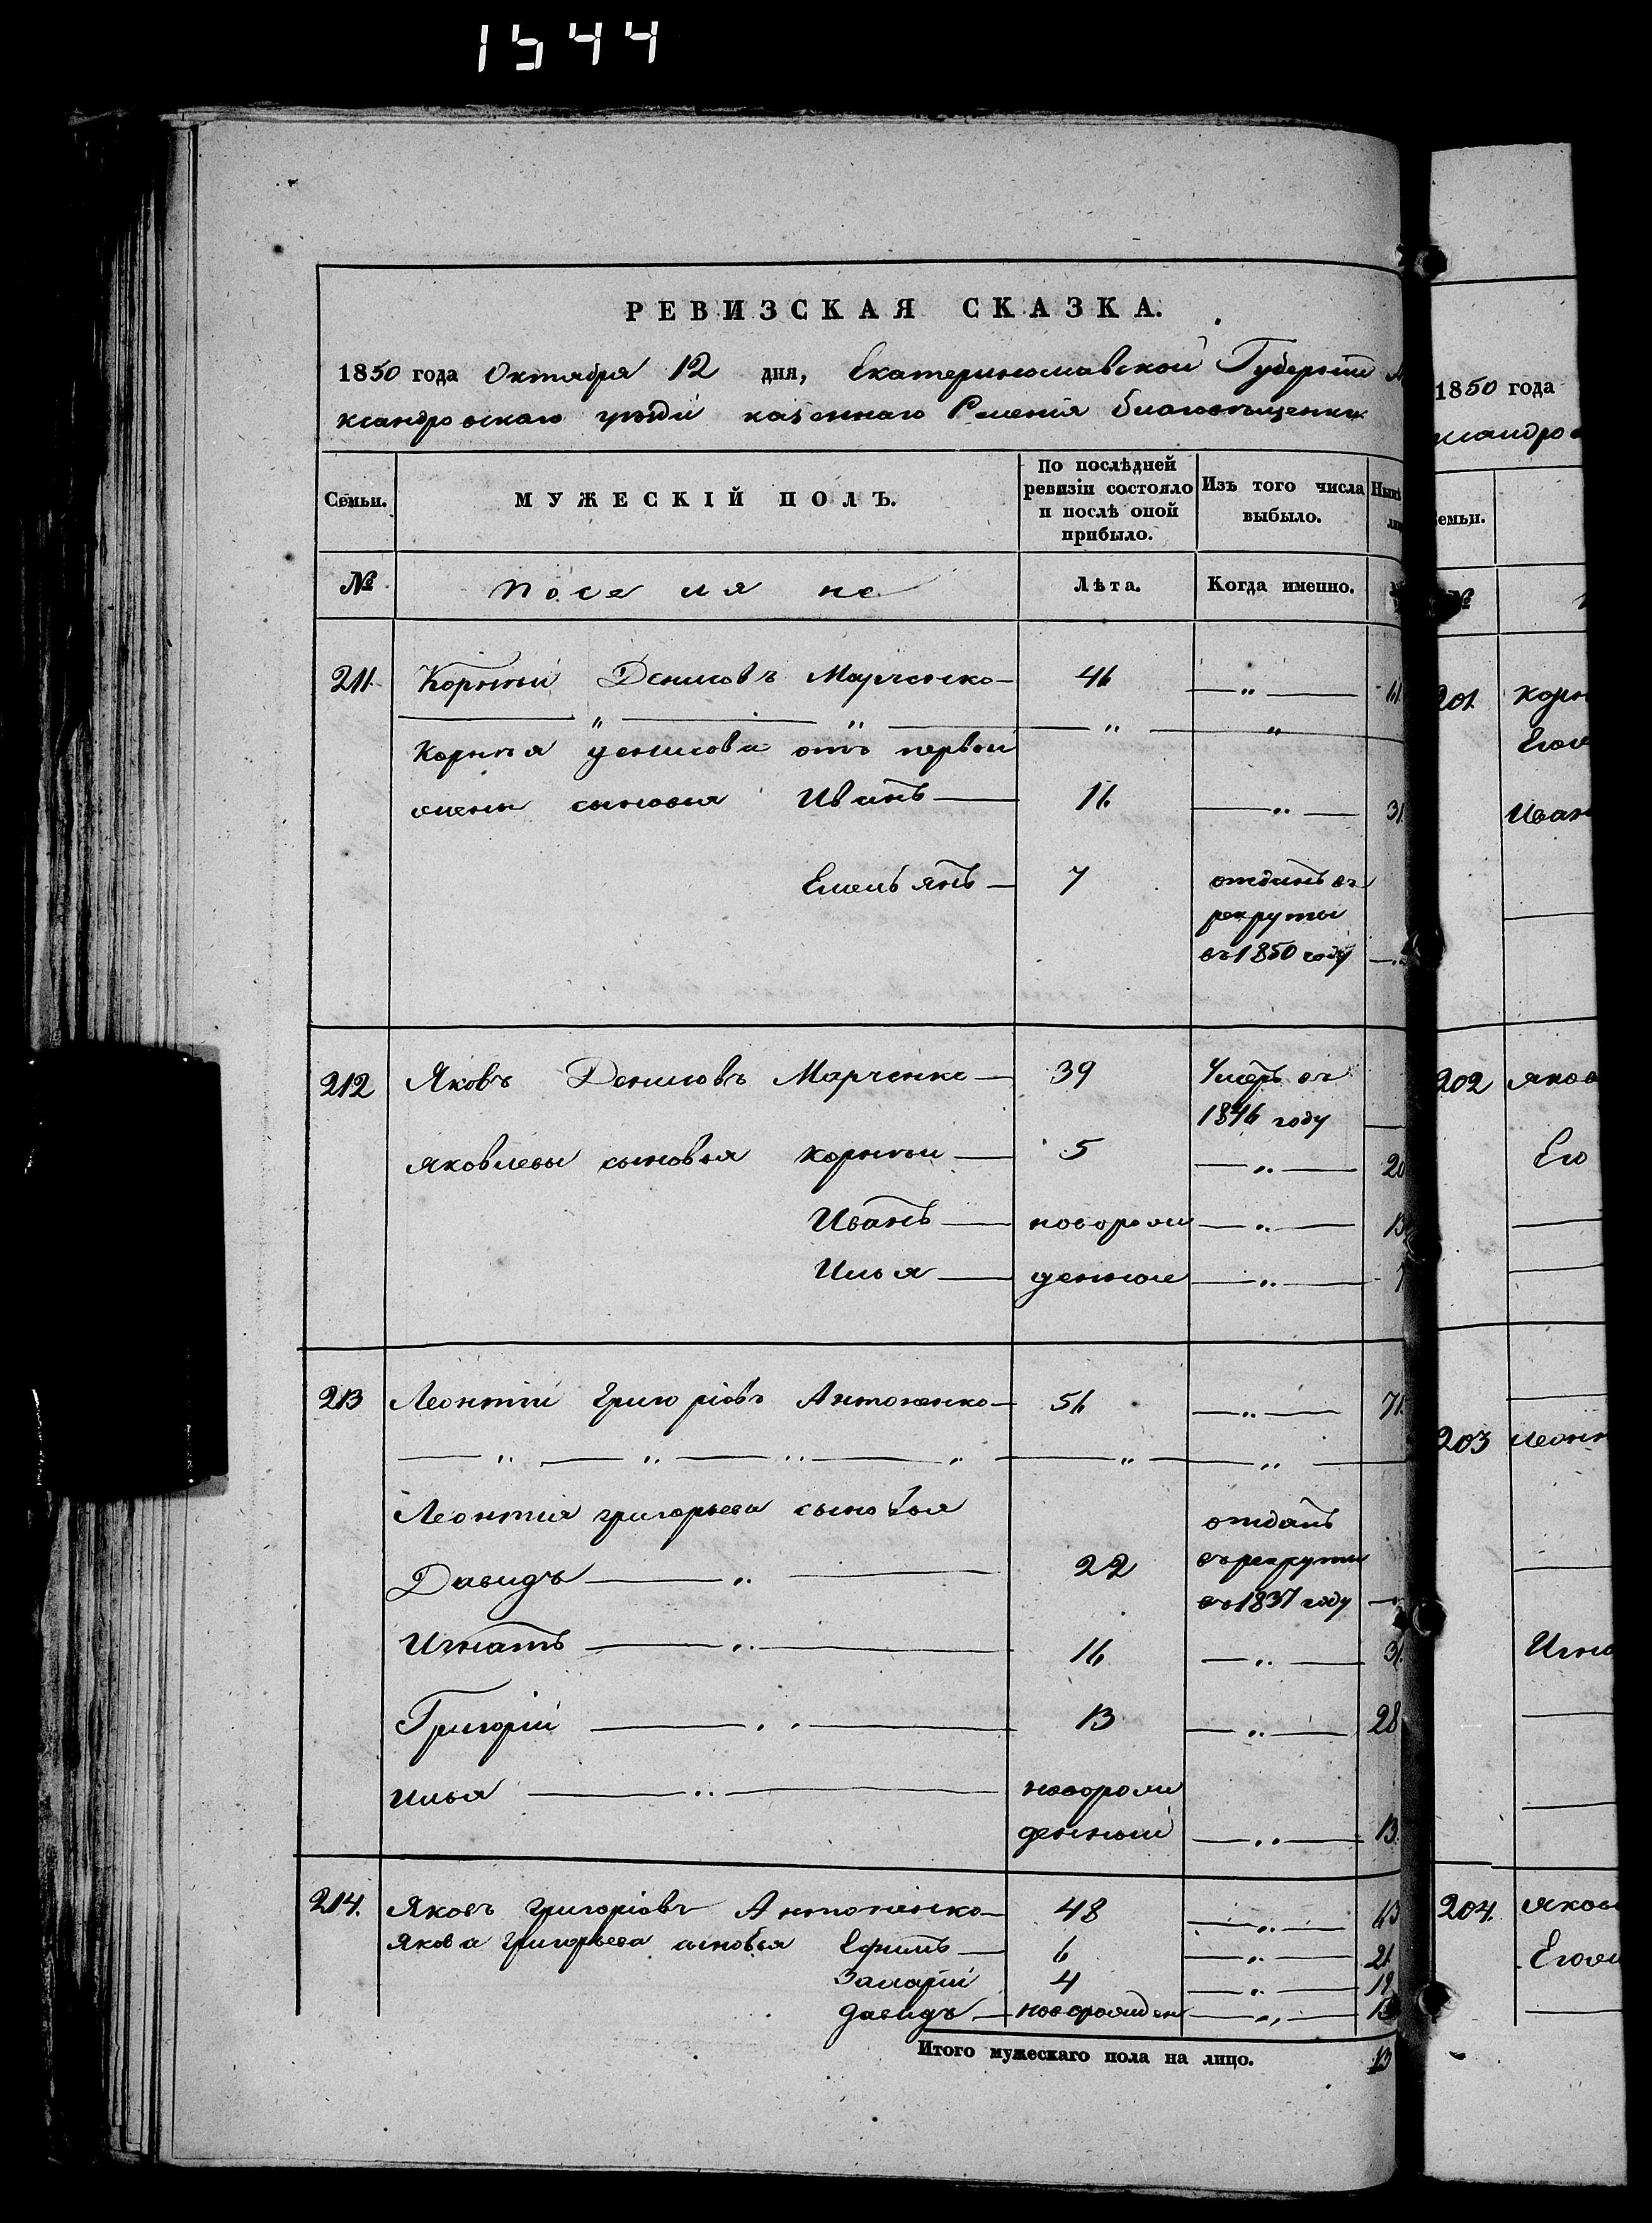 1544
РЕВИЗСКАЯ СКАЗКА.
1850 года Октября 12 дня, Екатеринославской Губерніи
ксандровскаго уѣзда казеннаго Селенія благовѣщенки
Семьи. МУЖЕСКІЙ ПОЛЪ. По послѣдней ревизіи состояло и послѣ оной прибыло. Изъ того числа выбыло.
№ поселяне Лѣта. Когда именно.
211. Корнѣй Денисовъ Марченко 46 — „ — 61
— „ — „ — „ — „
Корнѣя денисова отъ первой
жены сыновья Иванъ 16 — „ — 31.
Емельянъ 7 отданъ въ
рекруты
въ 1850 году
212 Яковъ Денисовъ Марченко 39 Умеръ въ
1846 году
Яковлевы сыновья корнѣй 5 — „ — 20
Иванъ новорож — „ — 13
Илья денные — „ — 7
213 Леонтій Григоріовъ Антоненко 56 — „ — 71.
— „ — „ — „ — „ — „ — „ —
Леонтія григорьева сыновья отданъ
Давидъ — „ — 22 въ рекруты
въ 1837 году
Игнатъ — „ — 16 — „ — 31.
Григорій — „ — 13 — „ — 28
Илья — „ — новорож
денный — „ — 13.
214. Яковъ Григоріовъ Антоненко 48 — „ — 63
Якова Григорьева сыновья Ефимъ 6 — „ — 21
Захарій 4 — „ — 19
давидъ новорожден — „ —
Итого мужескаго пола на лицо. 13
1850 года
ксандро
емьи.
№
201.
202 яков
Его
203 леон
204. яков